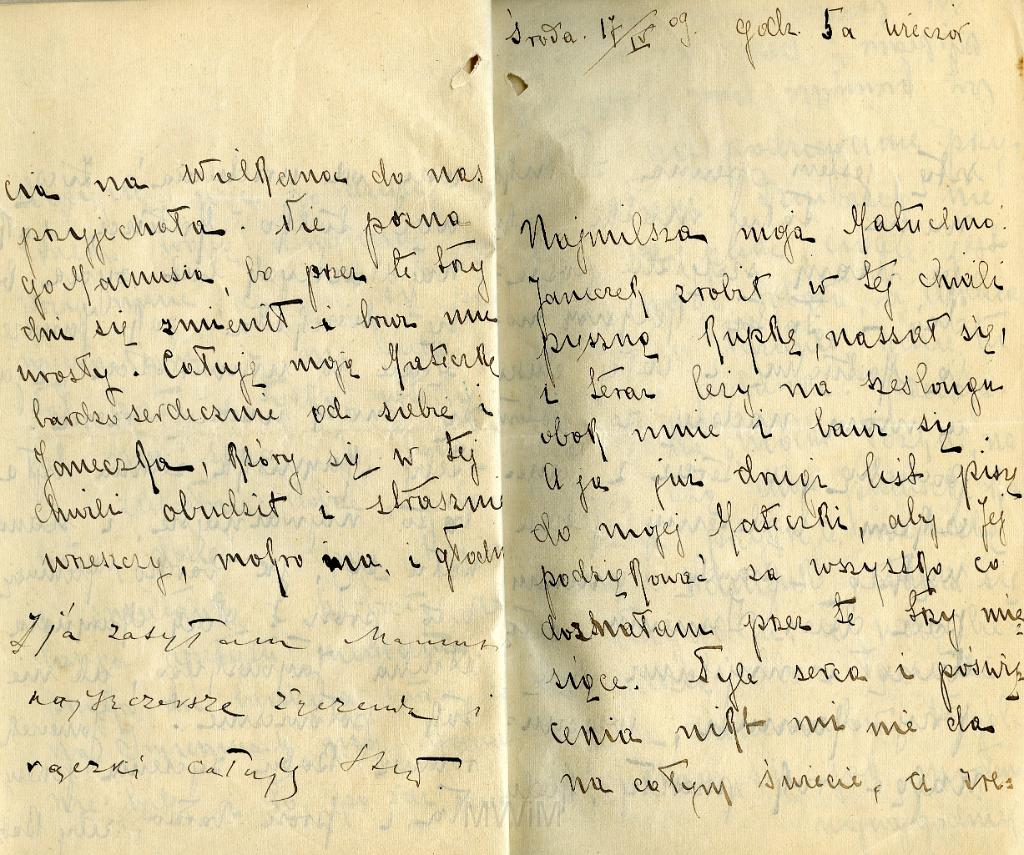 środa. 17/IV 09. godz. 5a wieczór
Najmilsza moja Matuchno.
Janeczek zrobił w tej chwili
pyszną kupkę, nassał się,
i teraz leży na szeslongu
obok mnie i bawi się
A ja już drugi list piszę
do mojej Mateczki, aby Jej
podziękować za wszystko co
doznałam przez te trzy mie
siące. Tyle serca i poświę
cenia nikt mi nie da
na całym świecie, a zre=
cia na Wielkanoc do nas
przyjechała. Nie pozna
go Mamusia, bo przez te trzy
dni się zmienił i brwi mu
urosły. Całuję moją Mateczkę
bardzo serdecznie od siebie i
Janeczka, który się w tej
chwili obudził i straszni
wrzeszczy, mokro ma, i głodn
I ja zasyłam Mamusi
najszczersze życzenia i
rączki całuję
MWiM